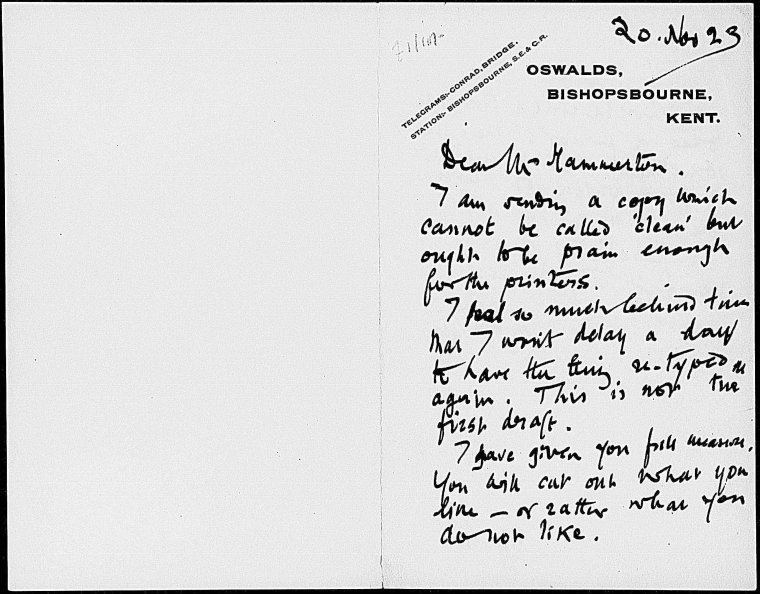 20. Nov 23
TELEGRAMS:- CONRAD, BRIDGE.
STATION:- BISHOPSBOURNE, S.E. & C.R.
OSWALDS,
BISHOPSBOURNE,
KENT.
Dear Mr Hammerton.
I am sending a copy which
cannot be called 'clean' but
ought to be plain enough
for the printers.
I feel so much behind time
that I won't delay a day
to have the thing re-typed
again. This is not the
first draft.
I have given you full measure.
You will cut out what you
like – or rather what you
do not like.